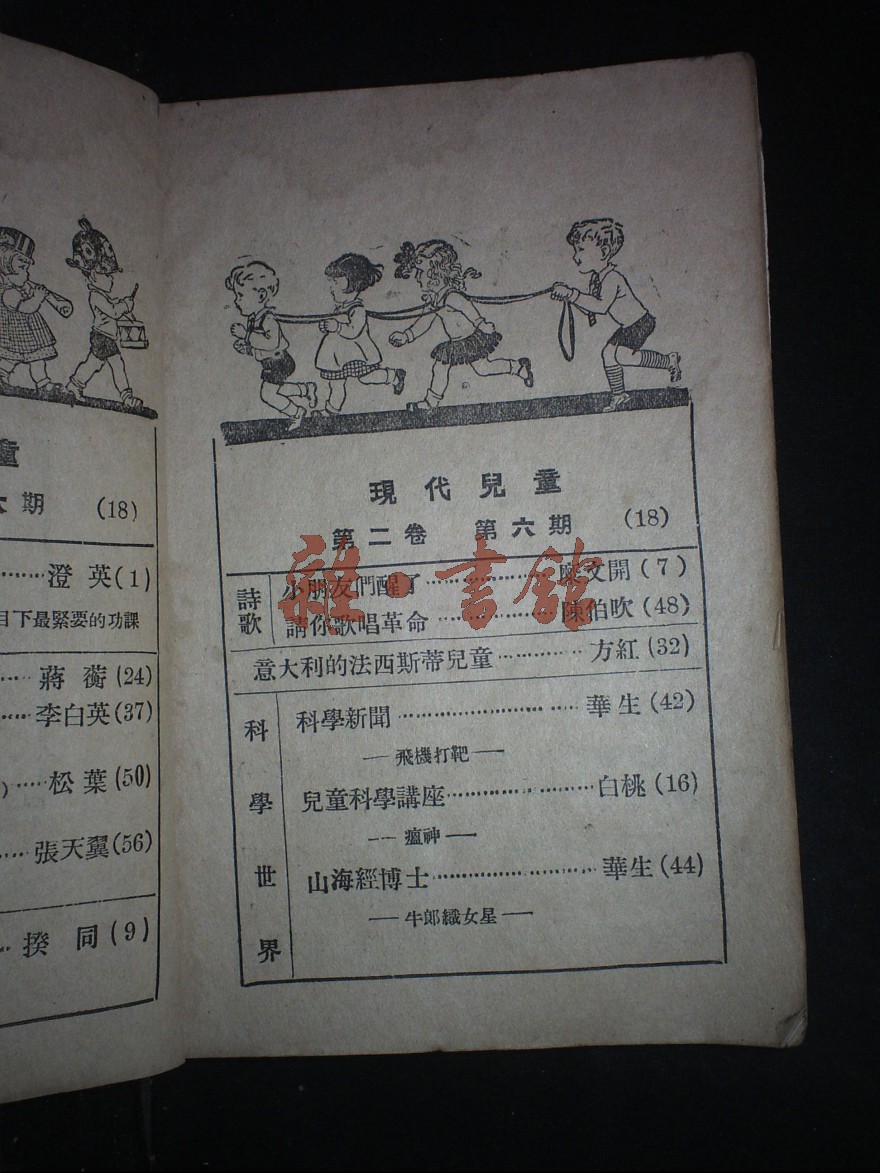 童
六期 (18)
澄英(1)
目下最緊要的功課
蔣蘅(24)
李白英(37)
)……松葉(50)
張天翼(56)
揆同(9)
現代兒童
第二卷 第六期 (18)
詩歌
小朋友們醒了…………………廖文開(7)
請你歌唱革命…………………陳伯吹(48)
意大利的法西斯蒂兒童…………方紅(32)
科學世界
科學新聞…………………………華生(42)
—飛機打靶—
兒童科學講座……………………白桃(16)
—瘟神—
山海經博士………………………華生(44)
—牛郎織女星—
雜·書館